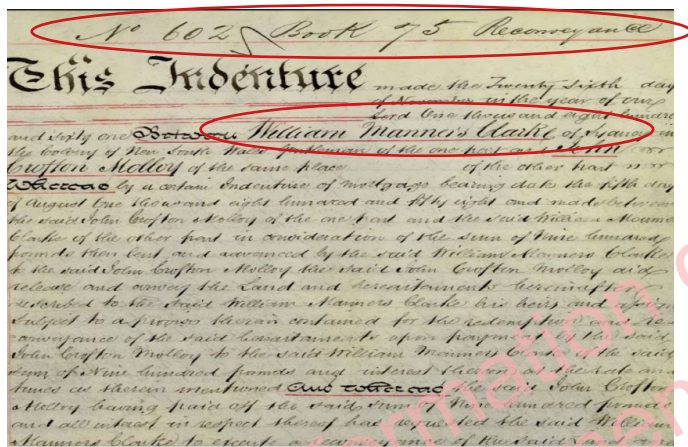 No 602 Book 75 Reconveyance
This Indenture made the Twenty Sixth day
of November in the year of our
Lord One thousand eight hundred
and sixty one Between William Manners Clarke of Sydney in
the Colony of New South Wales Gentleman of the one part and John
Crofton Molloy of the same place of the other part
Whereas by a certain Indenture of Mortgage bearing date the fifth day
of August One thousand eight hundred and fifty eight and made between
the said John Crofton Molloy of the one part and the said William Manners
Clarke of the other part in consideration of the sum of Nine hundred
pounds then lent and advanced by the said William Manners Clarke
to the said John Crofton Molloy the said John Crofton Molloy did
release and convey the Land and hereditaments hereinafter
described to the said William Manners Clarke his heirs and assigns
subject to a proviso therein contained for the redemption and re
conveyance of the said hereditaments upon payment by the said
John Crofton Molloy to the said William Manners Clarke of the said
sum of Nine hundred pounds and interest thereon at the rate and
times as therein mentioned And whereas the said John Crofton
Molloy having paid off the said sum of Nine hundred pounds
and all interest in respect thereof has requested the said William
Manners Clarke to execute a reconveyance of the said Land